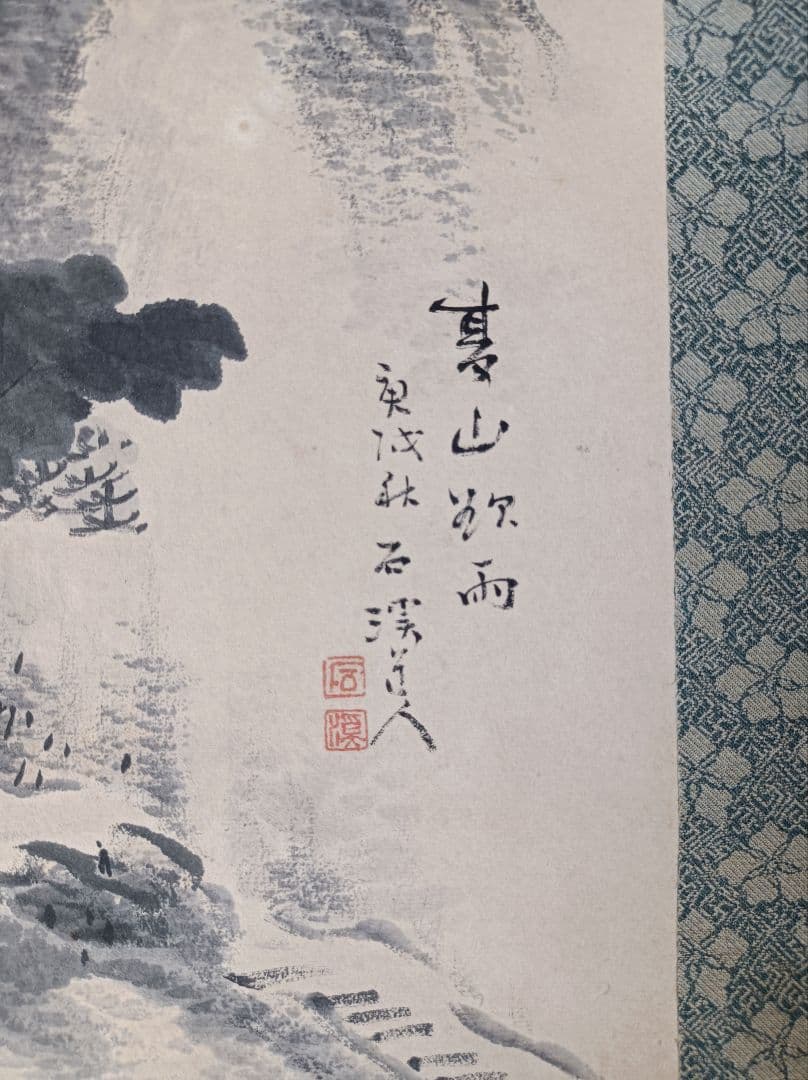 夏山欲雨
庚戌秋 石溪道人
石
溪